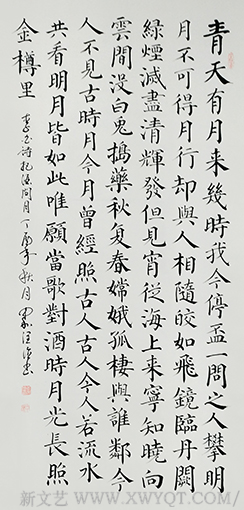 青天有月来幾時我今停盃一問之人攀明
月不可得月行却與人相隨皎如飛鏡臨丹闕
緑煙滅盡清輝發但見宵從海上来寧知曉向
雲間没白兎搗藥秋复春嫦娥孤棲與誰鄰今
人不見古時月今月曾經照古人古人今人若流水
共看明月皆如此唯願當歌對酒時月光長照
金樽里
李白诗把酒問月丁酉年秋月
新文艺 WWW.XWYQT.COM/